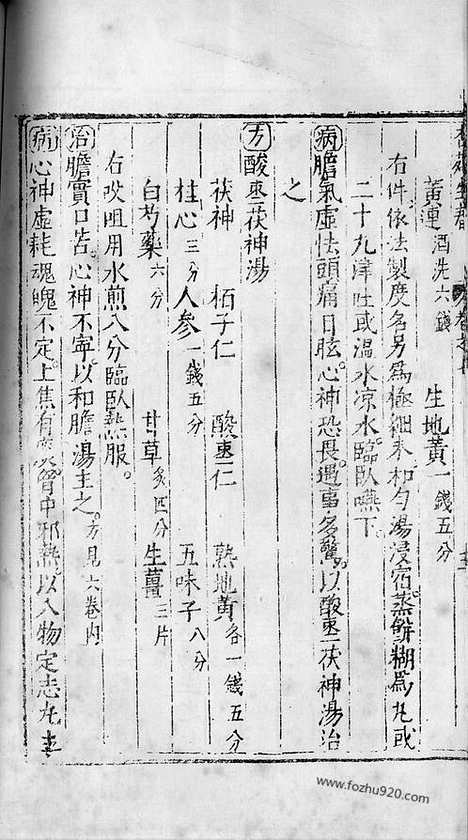 黄連酒洗六錢　生地黄一錢五分
右件依法製度各另爲極細末和匀湯浸宿蒸餅糊爲丸或
二十丸津吐或温水凉水臨臥嚥下
病膽氣虚怯頭痛目眩心神恐畏遇事多驚以酸棗茯神湯治
之
方酸棗茯神湯
茯神　栢子仁　酸棗仁　熟地黄各一錢五分
桂心三分　人参一錢五分　五味子八分
白芍藥六分　甘草炙四分　生薑三片
右㕮咀用水煎八分臨臥熱服
治膽實口苦心神不寧以和膽湯主之方見六卷内
病心神虚耗魂魄不定上焦有胷中邪熱以人物定志丸主
www.fozhu920.com